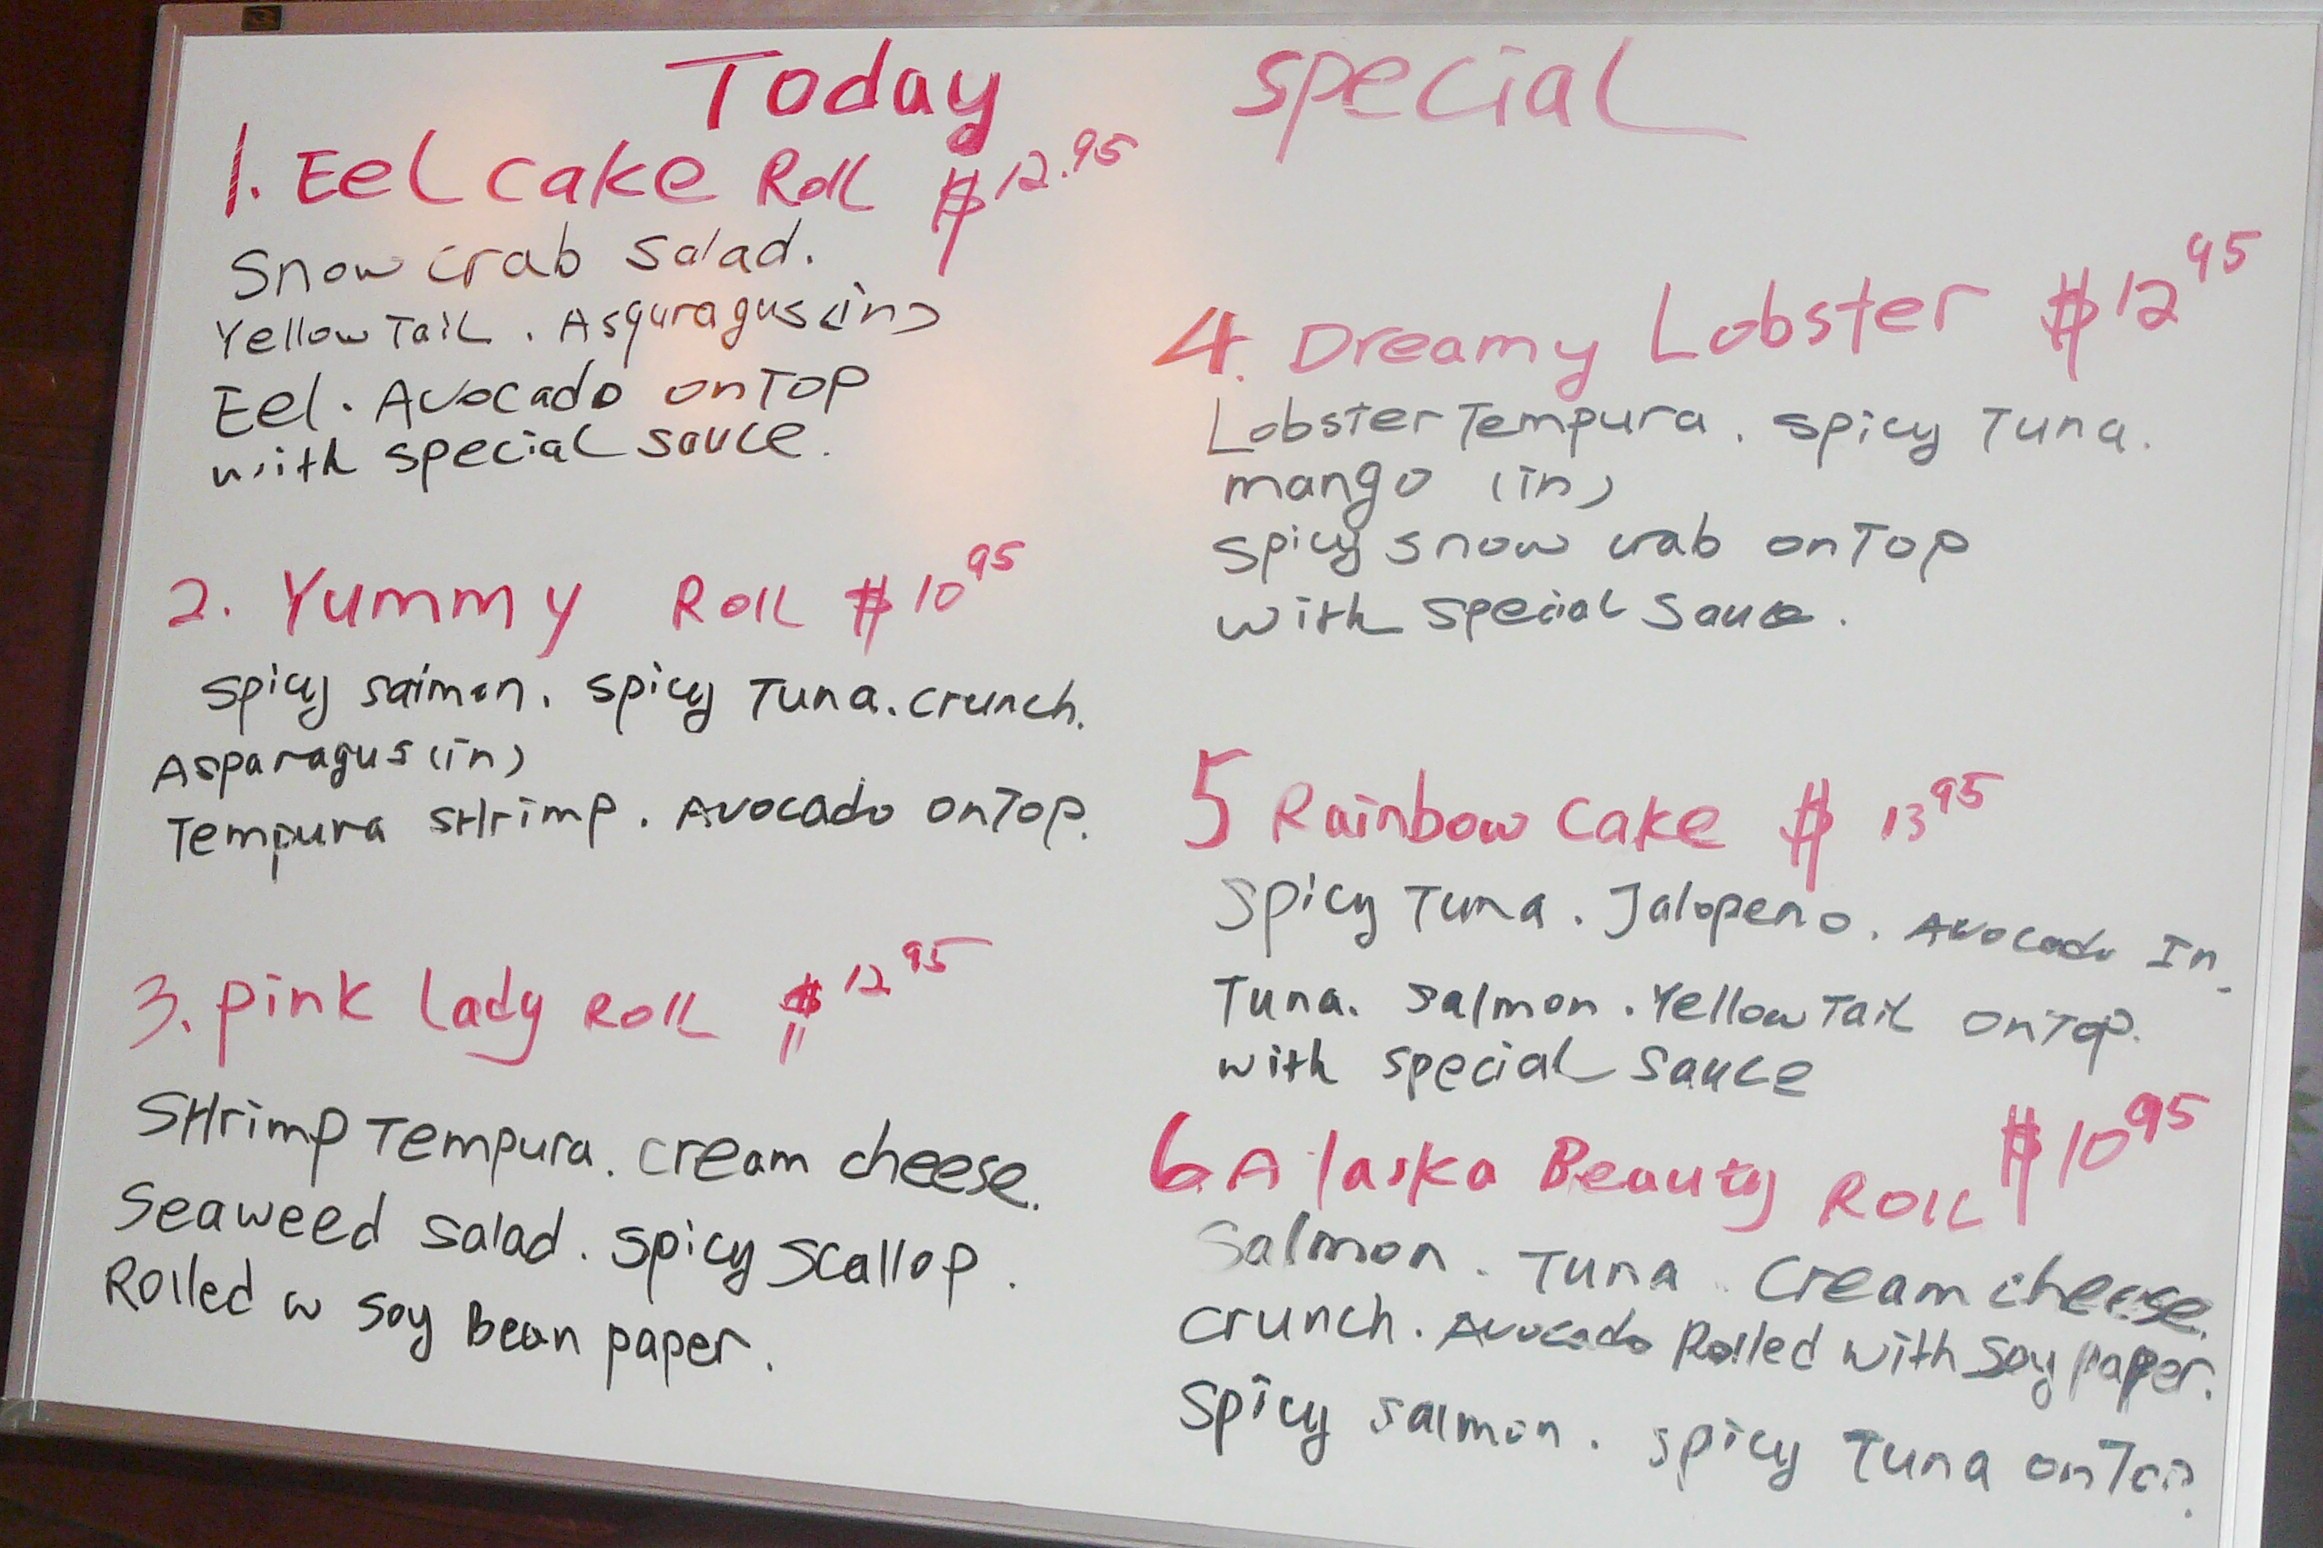 Today special
1. Eel cake Roll $12.95
Snow crab salad.
Yellow Tail. Asquragus (in)
Eel. Avocado on Top
with special sauce.
2. Yummy Roll $10 95
spicy salmon. spicy Tuna. crunch.
Asparagus (in)
Tempura SHrimp. Avocado on Top.
3. pink lady Roll $12 95
SHrimp Tempura. cream cheese.
Seaweed salad. spicy scallop.
Rolled w soy Bean paper.
4. Dreamy Lobster $12 95
Lobster Tempura. spicy Tuna.
mango (in)
spicy snow crab on Top
with special sauce.
5 Rainbow Cake $ 13 95
spicy Tuna. Jalopeno. Avocado In.
Tuna. salmon. Yellow Tail on Top.
with special sauce
6 Alaska Beauty Roll $10 95
Salmon. Tuna. Cream cheese.
crunch. Avocado Rolled with Soy paper.
Spicy salmon. spicy Tuna on Top.